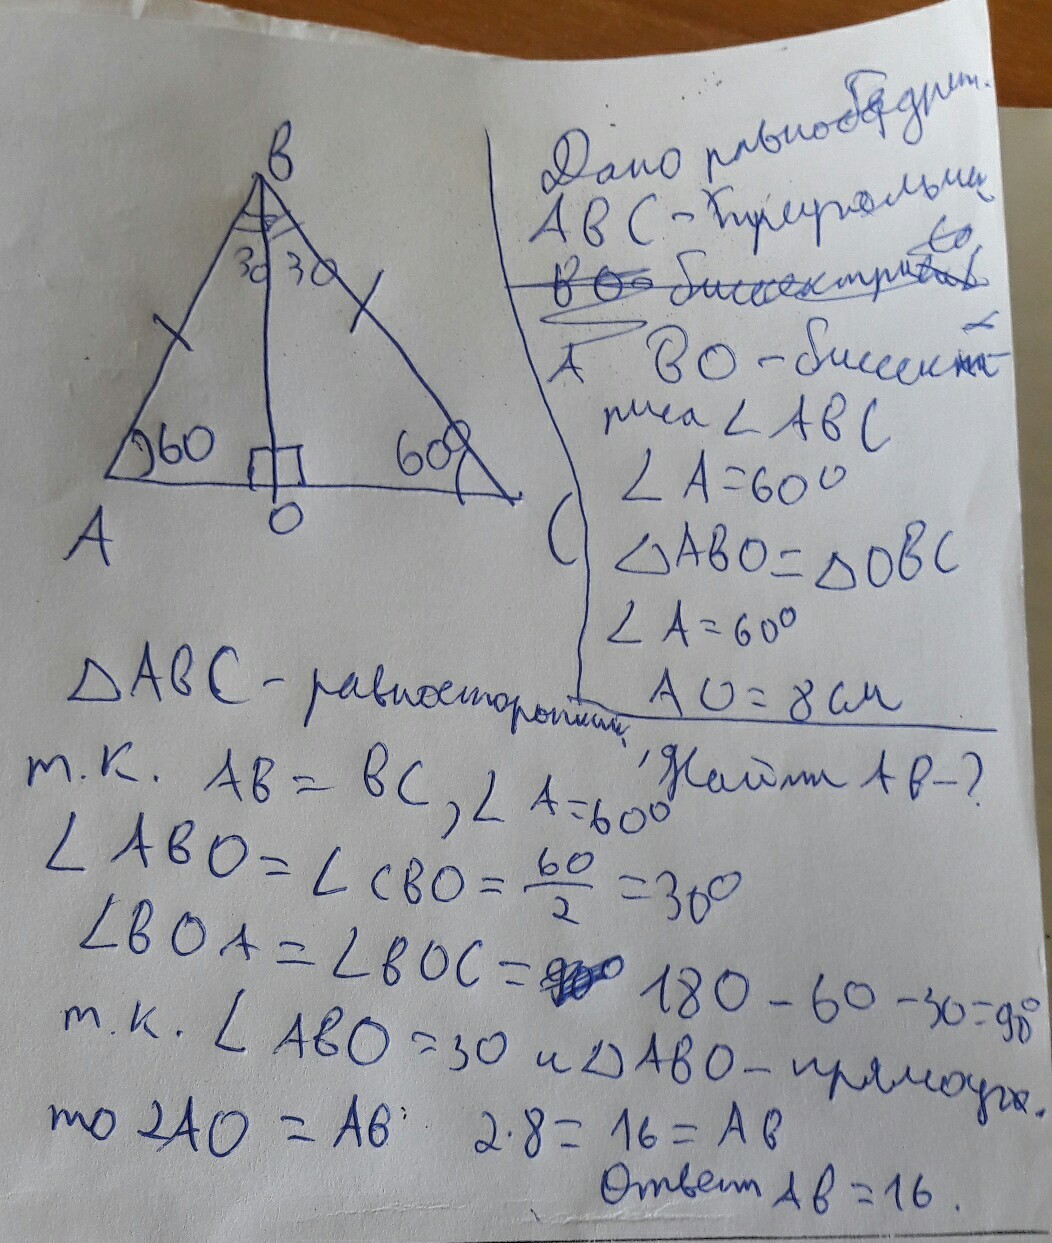 B
30 30
60 60
A O C
Дано равнобедрен.
ABC - треугольник
BO биссектриса
BO - биссект
риса ∠ABC
∠A=60°
△ABO=△OBC
∠A=60°
AO=8см
Найти AB-?
△ABC - равносторонний,
т.к. AB = BC, ∠A=60°
∠ABO=∠CBO=60/2=30°
∠BOA=∠BOC= 180-60-30=90°
т.к. ∠ABO=30 и △ABO - прямоуг.
то 2AO = AB 2·8=16=AB
Ответ AB=16.